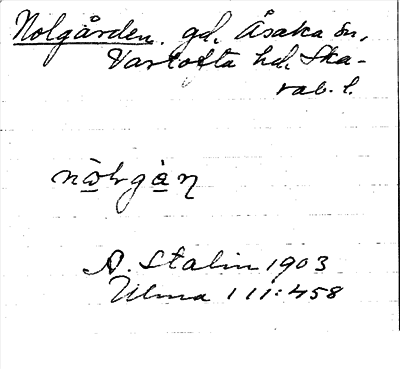 Nolgården. gd, Åsaka sn,
Vartofta hd, Ska-
rab. l.
A. Stalin 1903
Ulma 111:458